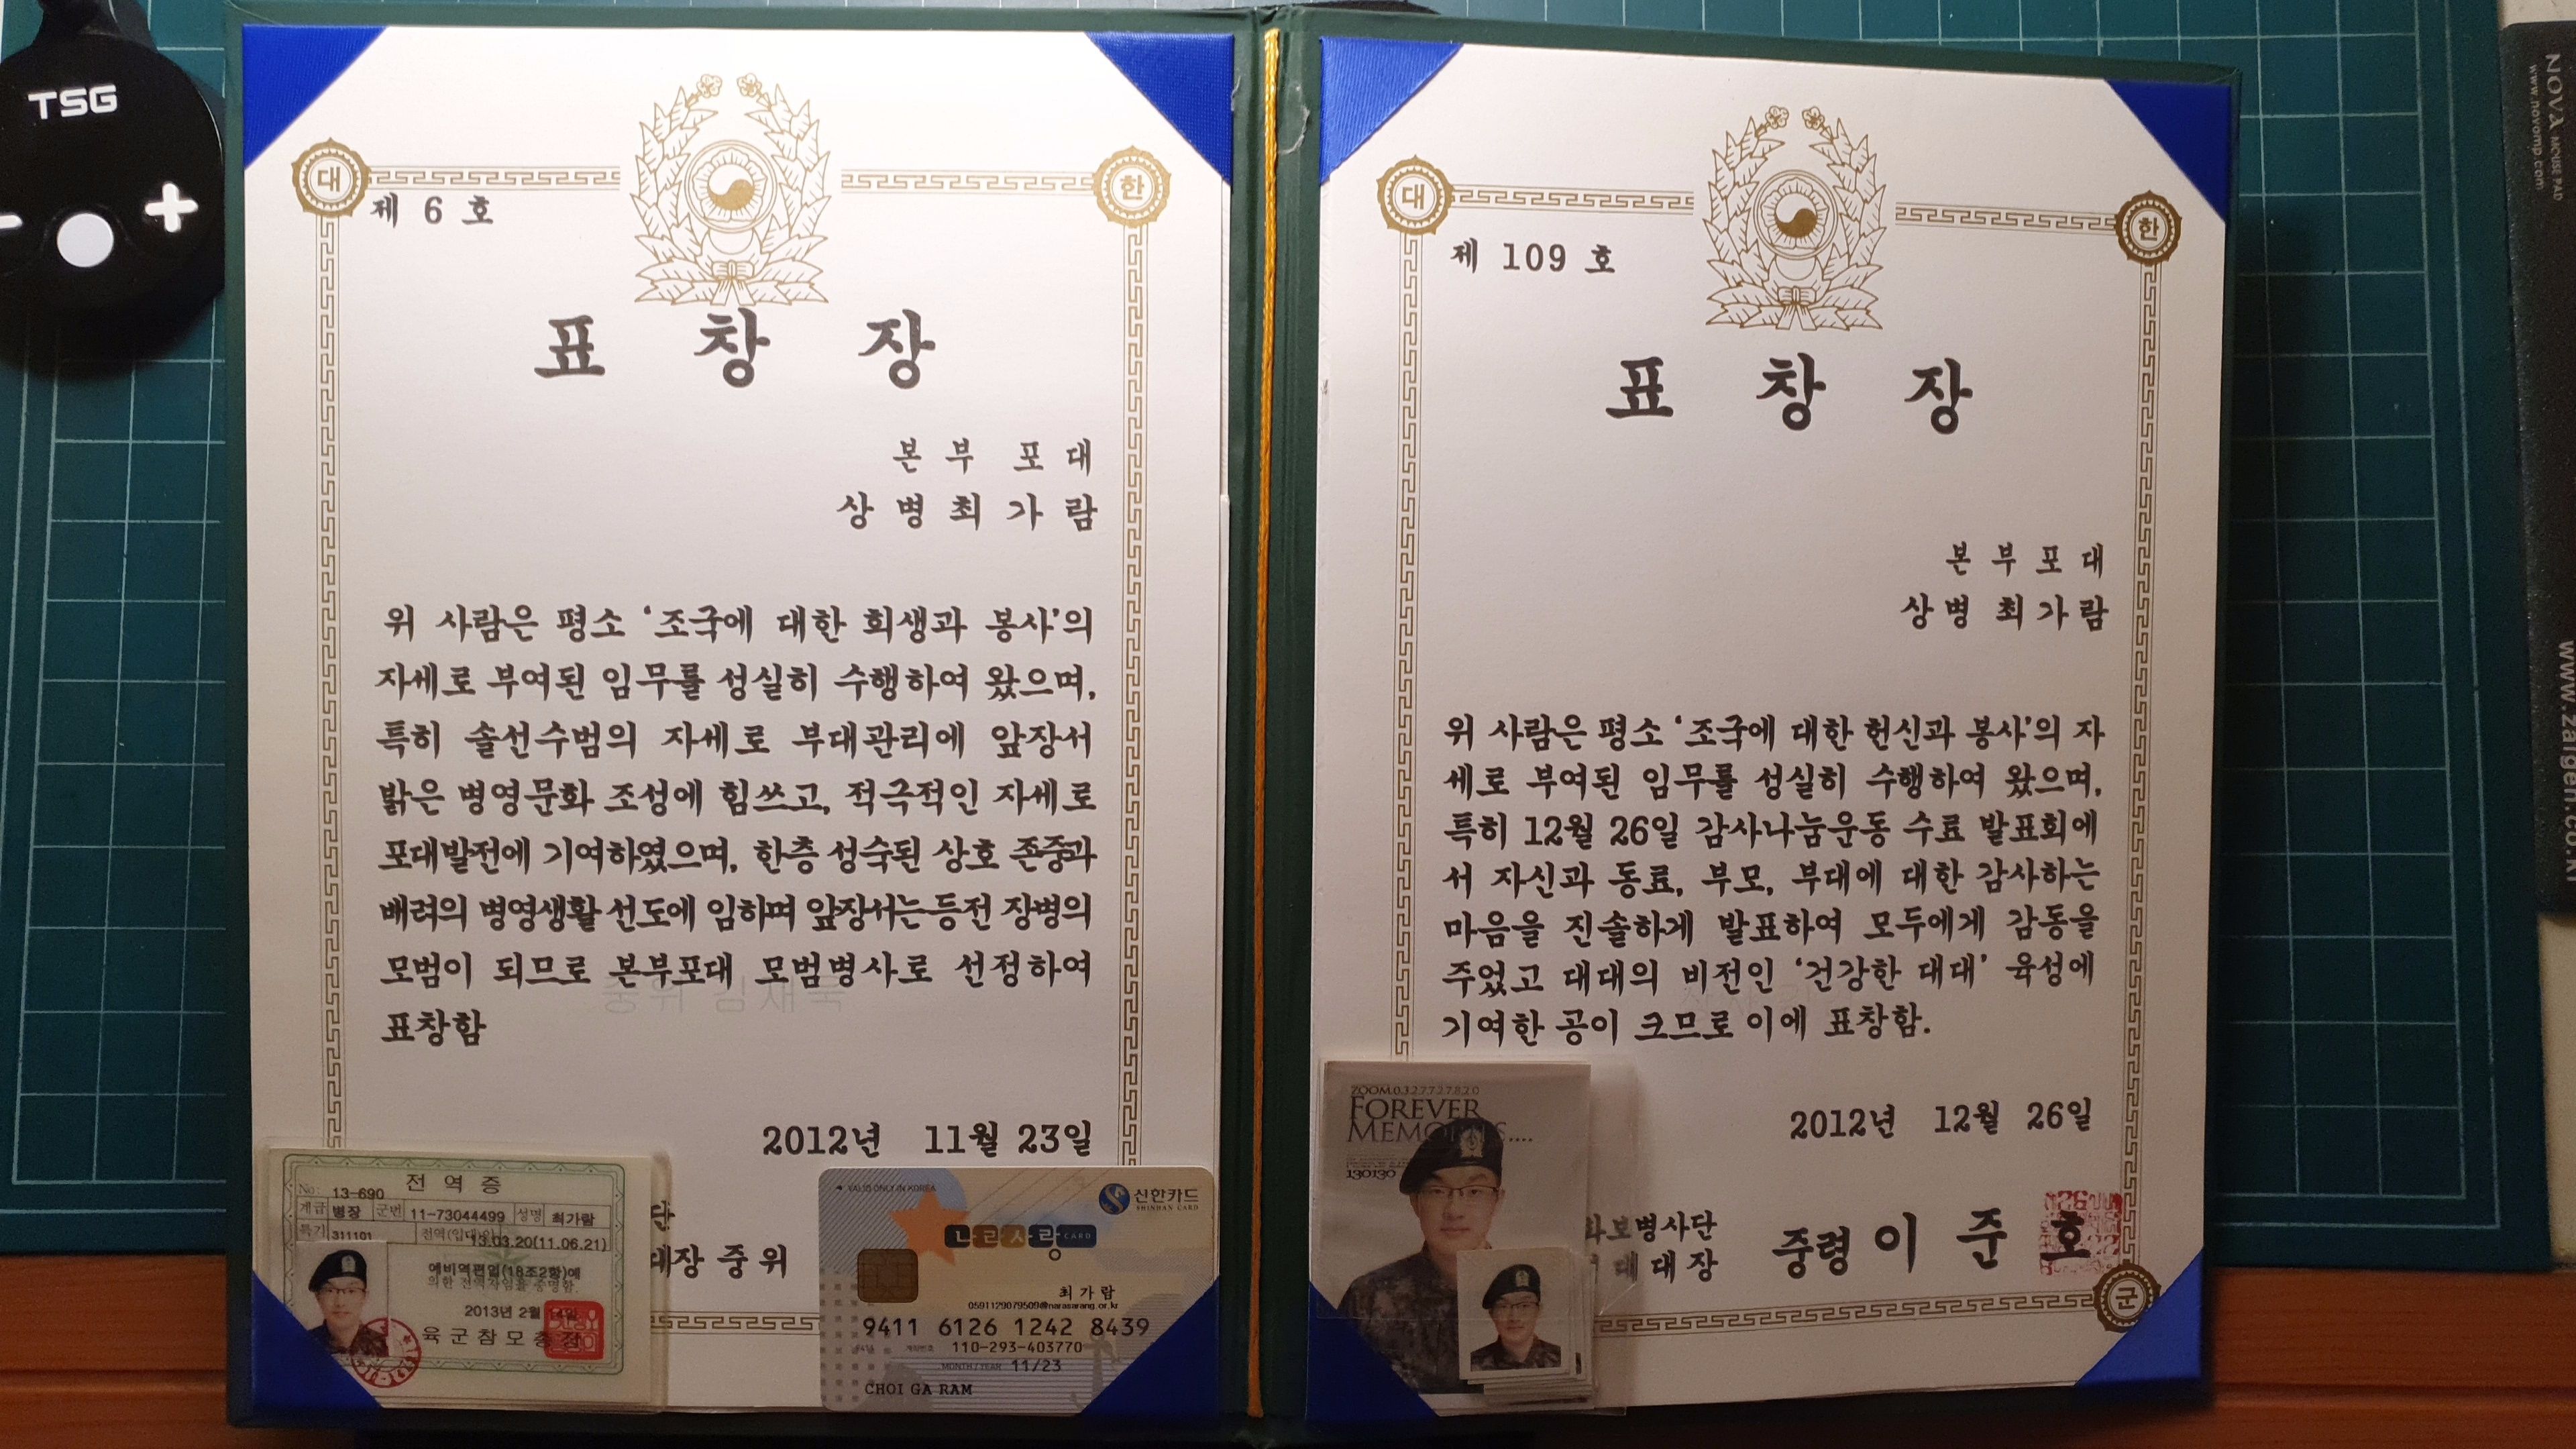 TSG
대
한
제 6 호
표 창 장
본 부 포 대
상 병 최 가 람
위 사람은 평소 ‘조국에 대한 희생과 봉사’의
자세로 부여된 임무를 성실히 수행하여 왔으며,
특히 솔선수범의 자세로 부대관리에 앞장서
밝은 병영문화 조성에 힘쓰고, 적극적인 자세로
포대발전에 기여하였으며, 한층 성숙된 상호 존중과
배려의 병영생활 선도에 임하며 앞장서는 등 전 장병의
모범이 되므로 본부포대 모범병사로 선정하여
표창함
2012년 11월 23일
단
대장 중위
전 역 증
No: 13-690
계급 병장 군번 11-73044499 성명 최가람
특기 311101 전역(입대)일 13.03.20(11.06.21)
예비역편입(18조2항)에
의한 전역자임을 증명함.
2013년 2월
육군참모총장
VALID ONLY IN KOREA
신한카드
SHINHAN CARD
나라사랑 CARD
최가람
0591129079509@narasarang.or.kr
9411 6126 1242 8439
110-293-403770
MONTH / YEAR 11/23
CHOI GA RAM
대
한
제 109 호
표 창 장
본 부 포 대
상 병 최 가 람
위 사람은 평소 ‘조국에 대한 헌신과 봉사’의 자
세로 부여된 임무를 성실히 수행하여 왔으며,
특히 12월 26일 감사나눔운동 수료 발표회에
서 자신과 동료, 부모, 부대에 대한 감사하는
마음을 진솔하게 발표하여 모두에게 감동을
주었고 대대의 비전인 ‘건강한 대대’ 육성에
기여한 공이 크므로 이에 표창함.
2012년 12월 26일
화보병사단
대대장 중령 이 준 호
군
ZOOM.032.772.7820
FOREVER
MEMORIES....
130130
NOVA MOUSE PAD
www.novamp.com
www.zaigen.co.kr